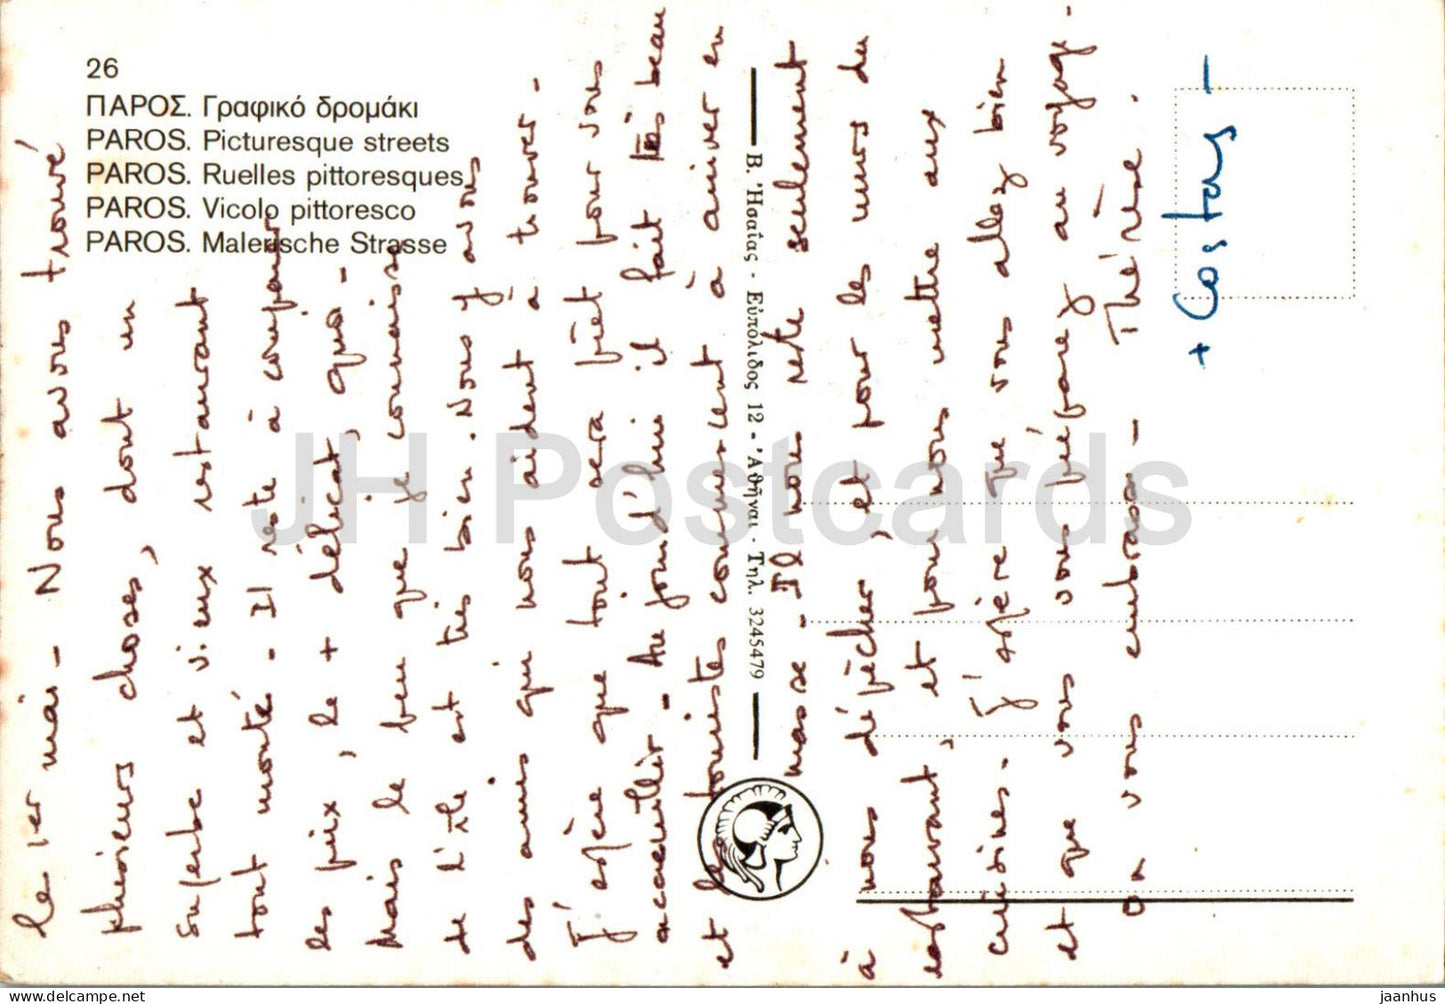 26
ΠΑΡΟΣ. Γραφικό δρομάκι
PAROS. Picturesque streets
PAROS. Ruelles pittoresques
PAROS. Vicolo pittoresco
PAROS. Malerische Strasse
Β. Ἡσαΐας - Εὐπόλιδος 12 - Ἀθῆναι - Τηλ. 3245479
le 1er mai - Nous avons trouvé
plusieurs choses, dont un
superbe et vieux restaurant
tout monté - Il reste à comparer
les prix, le + délicat, quoi -
Mais le peu que je connaisse
de l'île est très bien. Nous y avons
des amis qui nous aident à trouver -
J'espère que tout sera prêt pour vous
accueillir - Aujourd'hui il fait très beau
et les touristes commencent à arriver en
masse - Il nous reste seulement
à nous dépêcher, et pour les murs du
restaurant, et pour nous mettre aux
cuisines - J'espère que vous allez bien
et que vous vous préparez au voyage -
On vous embrasse - Thérèse.
+ Costas -
JH Postcards
delcampe.net
jaanhus